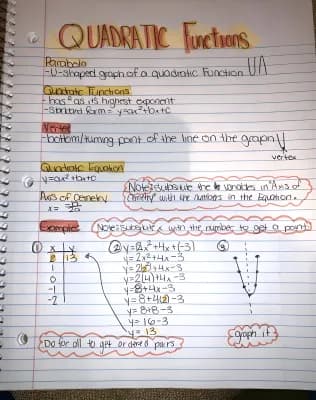 QUADRATIC Functions
Parabola
-U-shaped graph of a quadratic function
Quadratic Functions
- has ² as its highest exponent
-standard form = y=ax²+bx+c
Vertex
-bottom/turning point of the line on the graph
vertex
Quadratic Equation
y=ax²+bx+c
Axis of Cemetry
x = -b/2a
Note: subsitute the variables in "Axis of
Cemetry" with the numbers in the Equation.
Examples
Note: subsitute x with the number to get a point
① x y
2 13
1
0
-1
-2
② y=2x²+4x+(-3)
y= 2x²+4x-3
y= 2(2)²+4x-3
y=2(4)+4x-3
y=8+4x-3
y= 8+4(2)-3
y= 8+8-3
y= 16-3
y= 13
③
Do for all to get ordered pairs
graph it